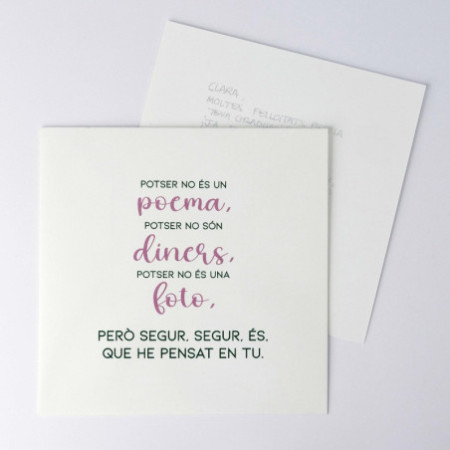 CLARA,
MOLTES FELICITATS
POTSER NO ÉS UN
poema,
POTSER NO SÓN
diners,
POTSER NO ÉS UNA
foto,
PERÒ SEGUR, SEGUR, ÉS,
QUE HE PENSAT EN TU.